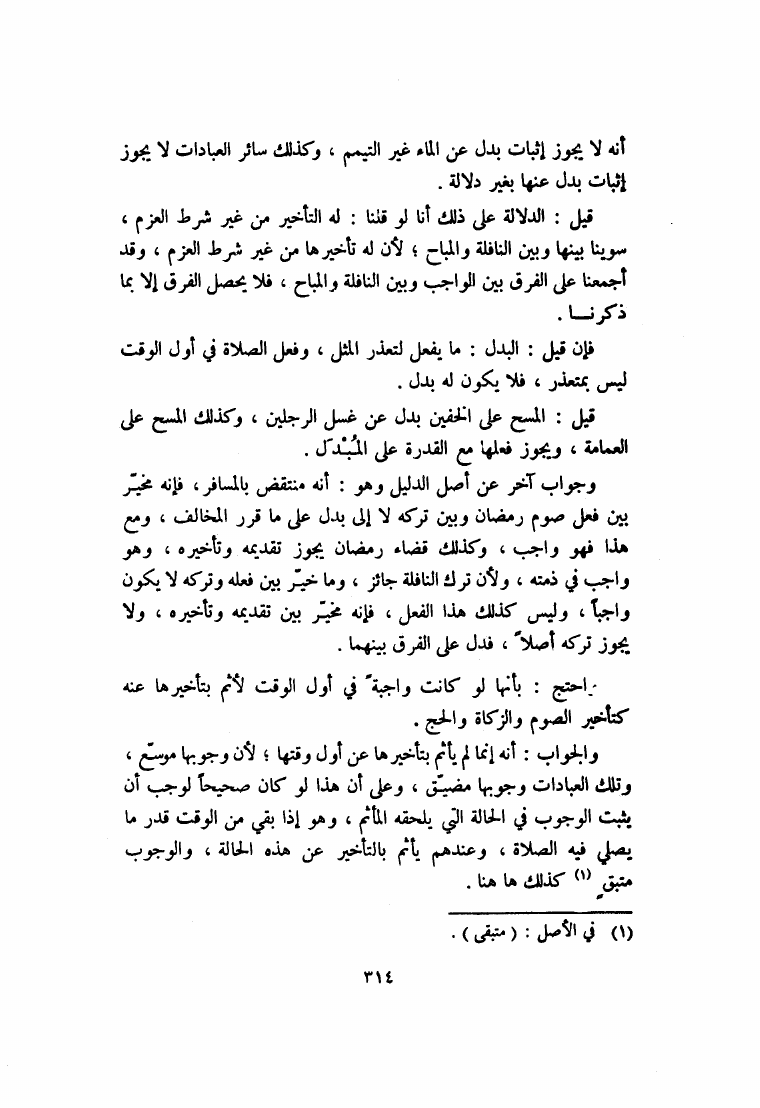 أنه لا يجوز إثبات بدل عن الماء غير التيمم ، وكذلك سائر العبادات لا يجوز
إثبات بدل عنها بغير دلالة .
قيل : الدلالة على ذلك أنا لو قلنا : له التأخير من غير شرط العزم ،
سوينا بينها وبين النافلة والمباح ؛ لأن له تأخيرها من غير شرط العزم ، وقد
أجمعنا على الفرق بين الواجب وبين النافلة والمباح ، فلا يحصل الفرق إلا بما
ذكرنـــا .
فإن قيل : البدل : ما يفعل لتعذر المثل ، وفعل الصلاة في أول الوقت
ليس بمتعذر ، فلا يكون له بدل .
قيل : المسح على الخفين بدل عن غسل الرجلين ، وكذلك المسح على
العمامة ، ويجوز فعلها مع القدرة على المُبْدَل .
وجواب آخر عن أصل الدليل وهو : أنه منتقض بالمسافر ، فإنه مخيـّر
بين فعل صوم رمضان وبين تركه لا إلى بدل على ما قرر المخالف ، ومع
هذا فهو واجب ، وكذلك قضاء رمضان يجوز تقديمه وتأخيره ، وهو
واجب في ذمته ، ولأن ترك النافلة جائز ، وما خيـّر بين فعله وتركه لا يكون
واجباً ، وليس كذلك هذا الفعل ، فإنه مخيـّر بين تقديمه وتأخيره ، ولا
يجوز تركه أصلاً ، فدل على الفرق بينهما .
واحتج : بأنها لو كانت واجبة ً في أول الوقت لأثم بتأخيرها عنه
كتأخير الصوم والزكاة والحج .
والجواب : أنه إنما لم يأثم بتأخيرها عن أول وقتها ؛ لأن وجوبها موسّع ،
وتلك العبادات وجوبها مضيـّق ، وعلى أن هذا لو كان صحيحاً لوجب أن
يثبت الوجوب في الحالة التي يلحقه المأثم ، وهو إذا بقي من الوقت قدر ما
يصلي فيه الصلاة ، وعندهم يأثم بالتأخير عن هذه الحالة ، والوجوب
متبقٍ (١) كذلك ها هنا .
(١) في الأصل : ( متبقى ) .
٣١٤